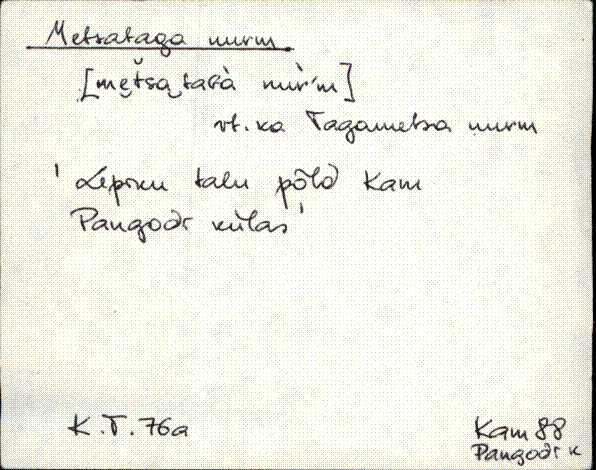 Metsataga nurm
[me̮tsa‿taGà nùr'm]
vt. ka Tagametsa nurm
' Lepiku talu põld Kam
Pangodi külas '
K.T. 76a
Kam 88
Pangodi k